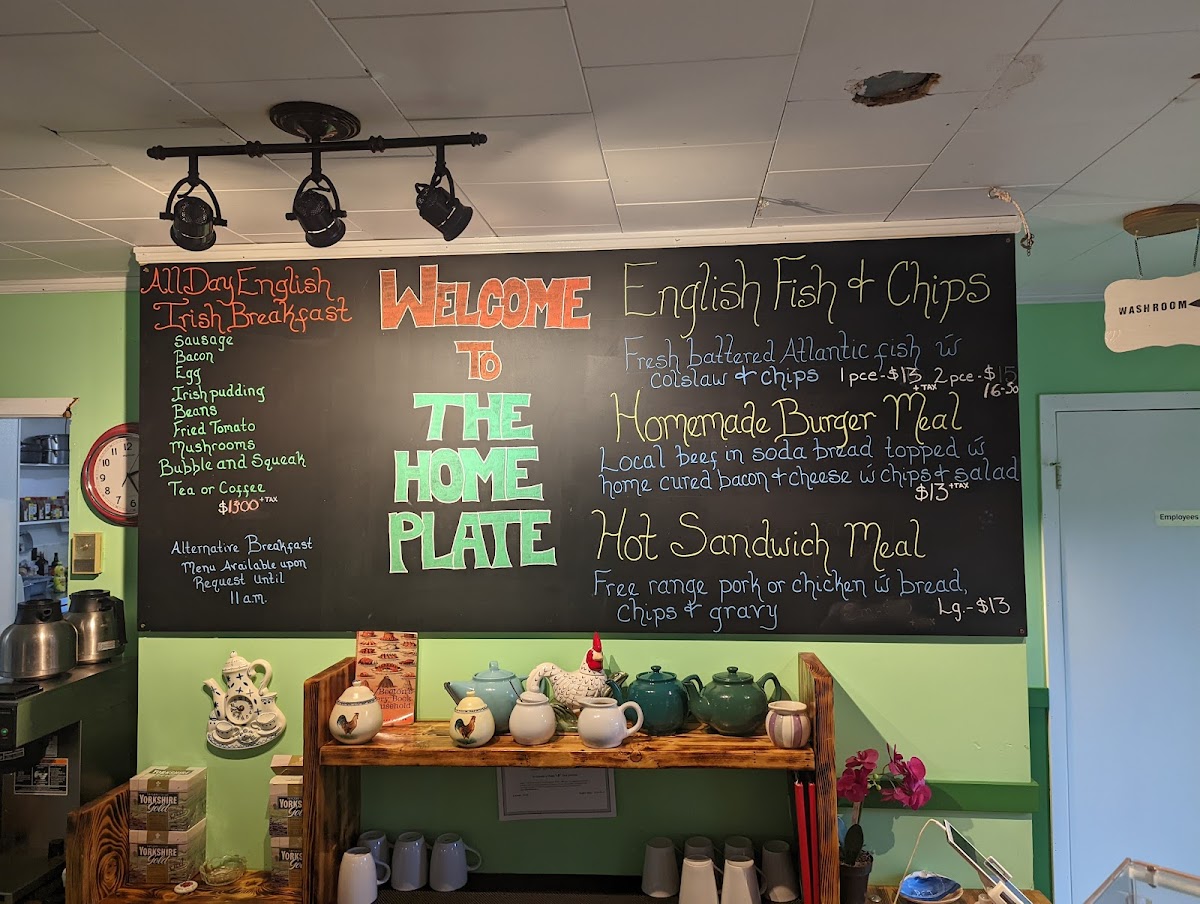 All Day English
Irish Breakfast
Sausage
Bacon
Egg
Irish pudding
Beans
Fried Tomato
Mushrooms
Bubble and Squeak
Tea or Coffee
$13.00 +TAX
Alternative Breakfast
Menu Available upon
Request Until
11 a.m.
WELCOME
TO
THE
HOME
PLATE
English Fish & Chips
Fresh battered Atlantic fish w̄
colslaw & chips 1 pce-$13 +TAX 2 pce-$15
16-50
Homemade Burger Meal
Local beef in soda bread topped w̄
home cured bacon & cheese w̄ chips & salad
$13 +TAX
Hot Sandwich Meal
Free range pork or chicken w̄ bread,
chips & gravy Lg.-$13
WASHROOM
Employees
YORKSHIRE
Gold
YORKSHIRE
Gold